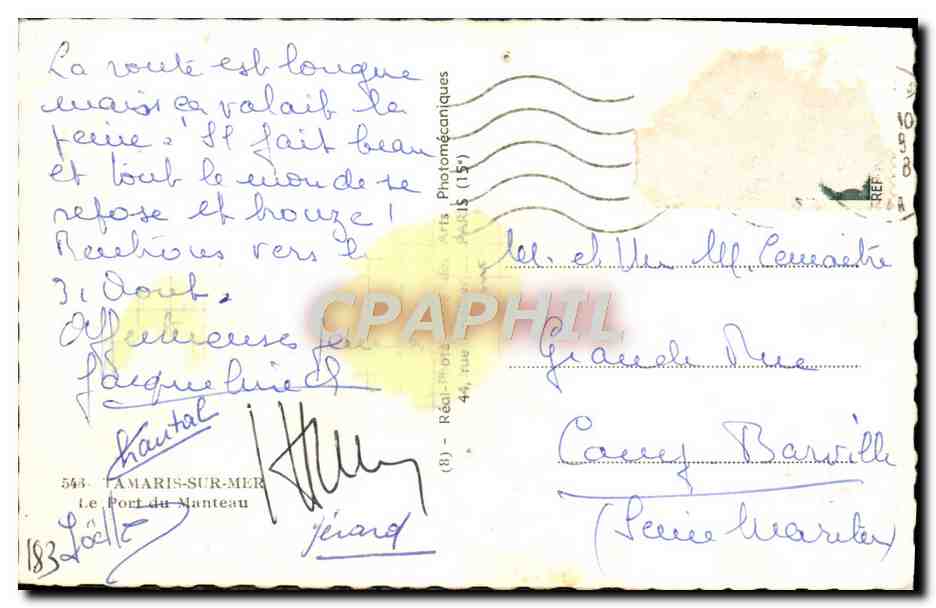 La route est longue
mais ça valait la
peine. Il fait beau
et tout le monde se
repose et bronze !
Rentrons vers le
31 Août.
Affectueuses
Jacqueline
Chantal
Gérard
Joëlle
183
543 - TAMARIS-SUR-MER
Le Port du Manteau
(8) - Réal-Photo des Arts Photomécaniques
44, rue PARIS (15e)
CPAPHIL
REP
M. et Mme M. Lemaitre
Grande Rue
Cany Barville
(Seine Maritime)